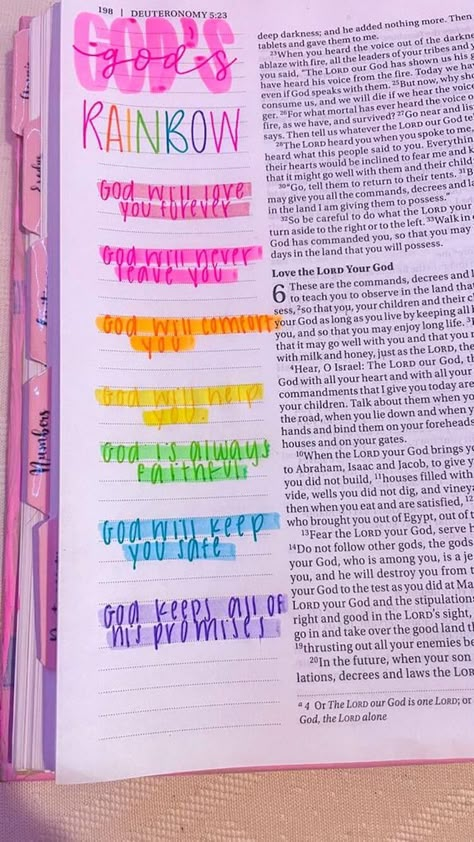 198 | DEUTERONOMY 5:23
GOD'S
god's
RAINBOW
GOD WILL LOVE
YOU FOREVER
GOD WILL NEVER
LEAVE YOU
GOD WILL COMFORT
YOU
GOD WILL HELP
YOU.
GOD IS ALWAYS
FAITHFUL
GOD WILL KEEP
YOU SAFE
GOD KEEPS ALL OF
HIS PROMISES
Numbers
deep darkness; and he added nothing more. Then
tablets and gave them to me.
23When you heard the voice out of the darkn
ablaze with fire, all the leaders of your tribes and
you said, "The LORD our God has shown us his g
have heard his voice from the fire. Today we ha
even if God speaks with them. 25But now, why sh
consume us, and we will die if we hear the voice
ger. 26For what mortal has ever heard the voice o
fire, as we have, and survived? 27Go near and li
says. Then tell us whatever the LORD our God te
28The LORD heard you when you spoke to me,
heard what this people said to you. Everything
their hearts would be inclined to fear me and k
that it might go well with them and their child
30"Go, tell them to return to their tents. 31B
may give you all the commands, decrees and l
in the land I am giving them to possess."
32So be careful to do what the LORD your
turn aside to the right or to the left. 33Walk in
God has commanded you, so that you may
days in the land that you will possess.
Love the LORD Your God
6 These are the commands, decrees and
to teach you to observe in the land that
sess, 2so that you, your children and their c
your God as long as you live by keeping all h
you, and so that you may enjoy long life. 3
that it may go well with you and that you m
with milk and honey, just as the LORD, the
4Hear, O Israel: The LORD our God, th
God with all your heart and with all your
commandments that I give you today are
your children. Talk about them when yo
the road, when you lie down and when y
hands and bind them on your foreheads
houses and on your gates.
10When the LORD your God brings y
to Abraham, Isaac and Jacob, to give y
you did not build, 11houses filled with
vide, wells you did not dig, and vineya
then when you eat and are satisfied, 12
who brought you out of Egypt, out of t
13Fear the LORD your God, serve h
14Do not follow other gods, the gods
your God, who is among you, is a je
you, and he will destroy you from t
your God to the test as you did at Ma
LORD your God and the stipulations
right and good in the LORD's sight,
go in and take over the good land th
19thrusting out all your enemies be
20In the future, when your son
lations, decrees and laws the LORD
a 4 Or The LORD our God is one LORD; or
God, the LORD alone